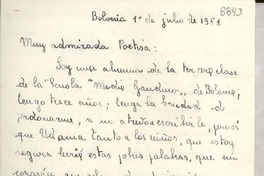 8843
Bolonia 1º de julio de 1951
Muy admirada Poetisa:
Soy una alumna de la tercera clase
de la "Scuola "Media Gandino", de Bolonia,
tengo trece años; tenga la bondad de
perdonarme, si me atrevo a escribirle, pero sé
que Ud ama tanto a los niños, que estoy
segura leerá estas pobres palabras, que mi
corazón